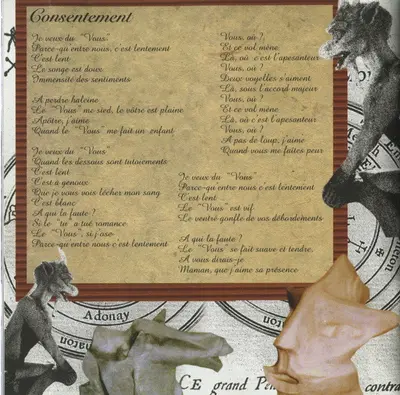 Consentement
Je veux du "Vous"
Parce-qu'entre nous, c'est lentement
C'est lent
Le songe est doux
Immensité des sentiments
A perdre haleine
Le "Vous" me sied, le vôtre est plaine
Apôtre, j'aime
Quand le "Vous" me fait un enfant
Je veux du "Vous"
Quand les dessous sont tutoiements
C'est lent
C'est à genoux
Que je vous vous lécher mon sang
C'est blanc
A qui la faute ?
Si le "tu" a tué romance
Le "Vous", si j'ose
Parce-qu'entre nous c'est lentement
Vous, où ?,
Et ce vol mène
Là, où c'est l'apesanteur
Vous, où ?
Deux voyelles s'aiment
Là, sous l'accord majeur
Vous, où ?
Et ce vol mène
Là, où c'est l'apesanteur
Vous, où ?
A pas de loup, j'aime
Quand vous me faites peur
Je veux du "Vous"
Parce-qu'entre nous c'est lentement
C'est lent ...
Le "Vous" est vif
Le ventre gonfle de vos débordements
A qui la faute ?
Le "Vous" se fait suave et tendre,
A vous dirais-je
Maman, que j'aime sa présence
Adonay
CE grand Pen
contra